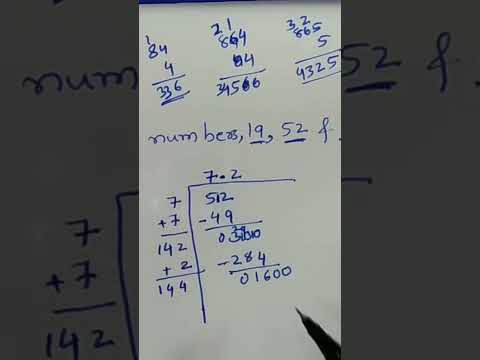 1 2 1 3 2
84 864 865
4 4 5
336 34566 4325
numbers, 19, 52 f.
52 f.
7.2
7 512
+7 -49
142 0
+2 -284
144 01600
7
+7
142